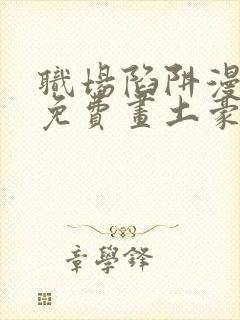 職場陷阱漫
免費畫土豪
章學鋒